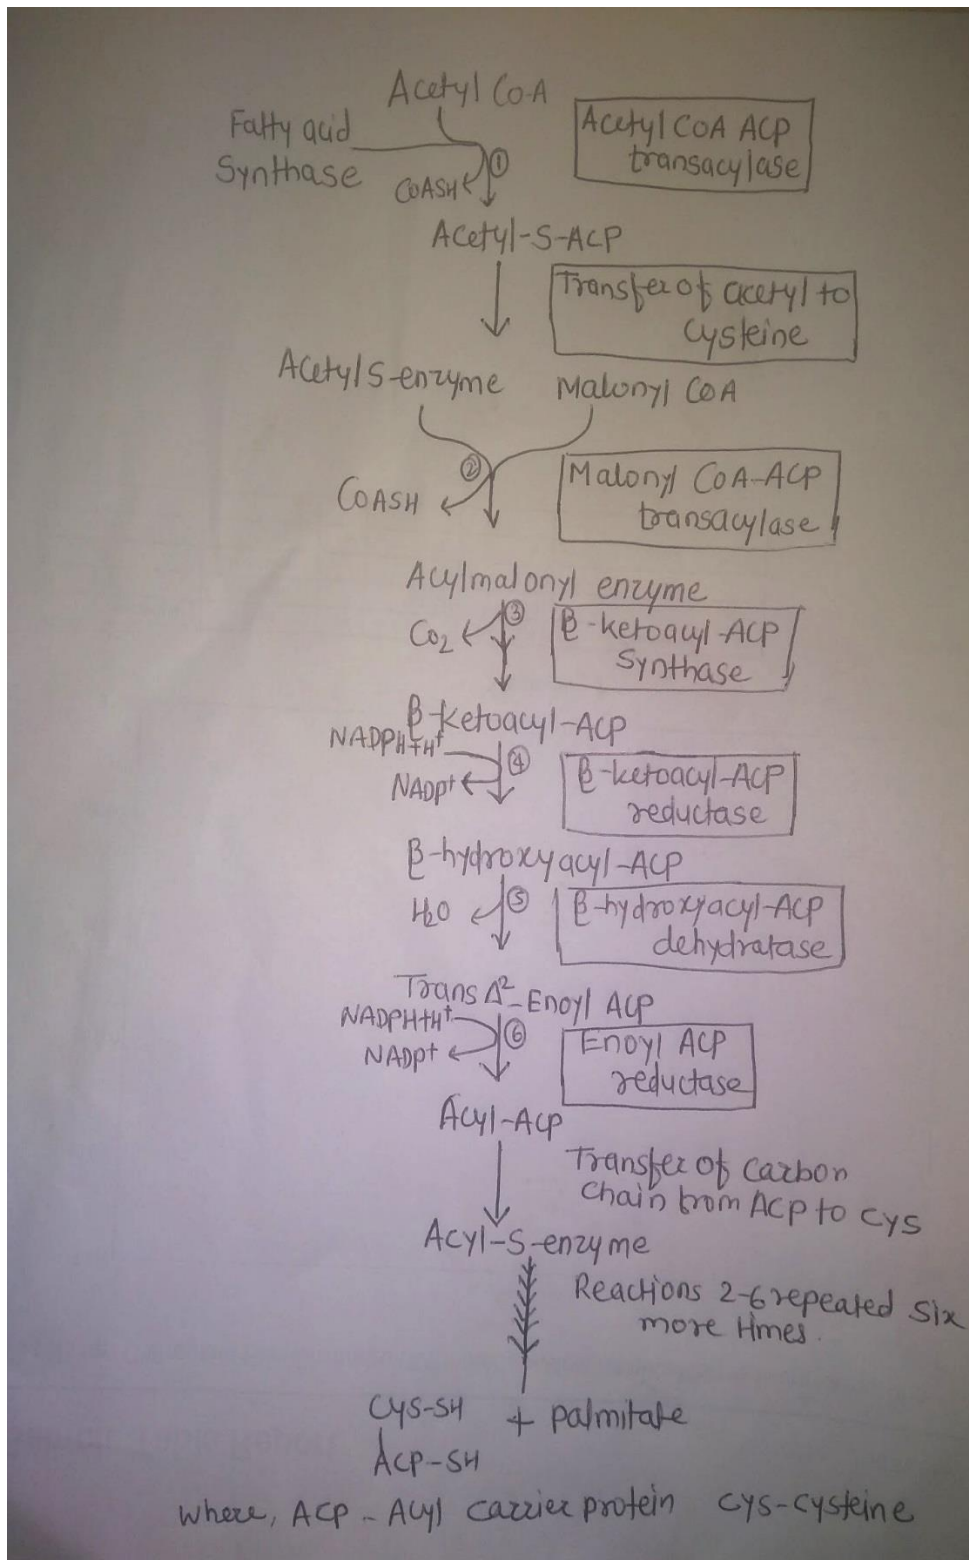 Acetyl CoA
Fatty acid
Synthase
Acetyl COA ACP
transacylase
①
COASH
Acetyl-S-ACP
Transfer of acetyl to
Cysteine
Acetyl S-enzyme
Malonyl COA
②
COASH
Malonyl COA-ACP
transacylase
Acylmalonyl enzyme
③
CO2
β-ketoacyl-ACP
Synthase
β-ketoacyl-ACP
NADPH+H+
④
NADP+
β-ketoacyl-ACP
reductase
β-hydroxyacyl-ACP
H2O
⑤
β-hydroxyacyl-ACP
dehydratase
Trans Δ²-Enoyl ACP
NADPH+H+
⑥
NADP+
Enoyl ACP
reductase
Acyl-ACP
Transfer of carbon
chain from ACP to cys
Acyl-S-enzyme
Reactions 2-6 repeated six
more times.
Cys-SH + palmitate
ACP-SH
where, ACP - Acyl carrier protein cys-cysteine